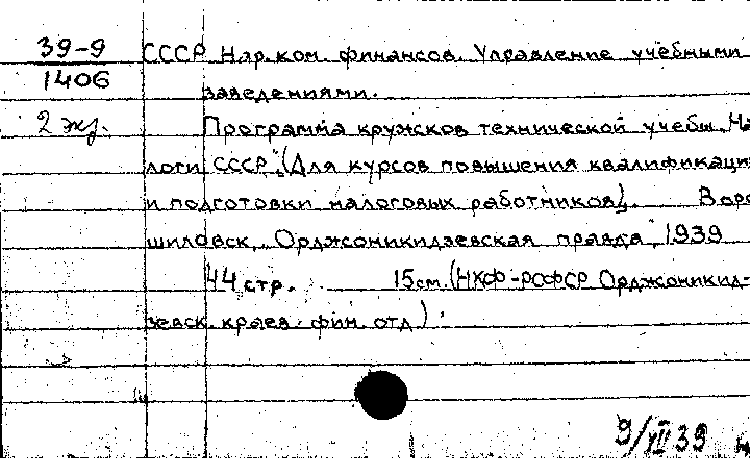 39-9 СССР Нар. ком. финансов. Управление учебными
1406 заведениями.
2 экз. Программа кружков технической учебы. "На-
логи СССР" (Для курсов повышения квалификаци
и подготовки налоговых работников). Воро-
шиловск, "Орджоникидзевская правда", 1939
44 стр. 15 см. (НКФ-РСФСР Орджоникид-
зевск. краев. фин. отд).
9/XII 39